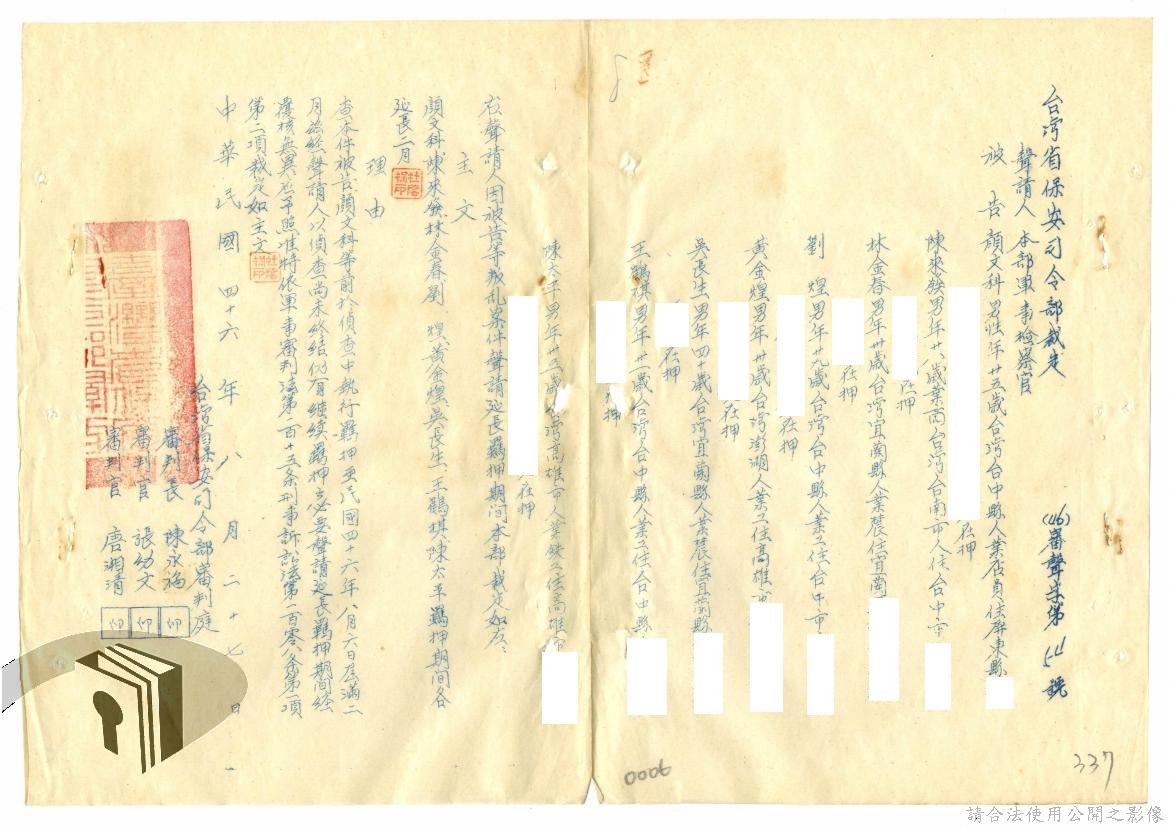 台灣省保安司令部裁定
(46)審聲字第 號
聲請人 本部軍事檢察官
被告 顏文科 男性年廿五歲台灣台中縣人業店員住屏東縣
在押
陳來發 男年廿八歲業商台灣台南市人住台中市
在押
林金春 男年卅歲台灣宜蘭縣人業農住宜蘭
在押
劉 煌 男年廿九歲台灣台中縣人業工住台中市
在押
黃金煌 男年卅歲台灣澎湖人業工住高雄市
在押
吳長生 男年四十歲台灣宜蘭縣人業農住宜蘭縣
在押
王鶴棋 男年廿一歲台灣台中縣人業工住台中縣
在押
陳太平 男年廿三歲台灣高雄市人業 工住高雄市
在押
右聲請人因被告等叛乱案件聲請延長羈押期間本部裁定如左:
主文
顏文科陳來發林金春劉 煌黃金煌吳長生王鶴棋陳太平羈押期间各
延長二月
理由
查本件被告顏文科等前於偵查中執行羈押至民國四十六年八月六日屆滿二
月茲經聲請人以偵查尚未終結仍有继续羈押必要聲請延長羈押期間經
覆核無異应予照准特依軍事審判法第一百十五条刑事訴訟法第一百零八条第一項
第二項裁定如主文
中華民國四十六年八月二十七日
台灣省保安司令部審判庭
審判長 陳永福
審判官 張幼文
審判官 唐湘清
印
印
印
0006
337
請合法使用公開之影像